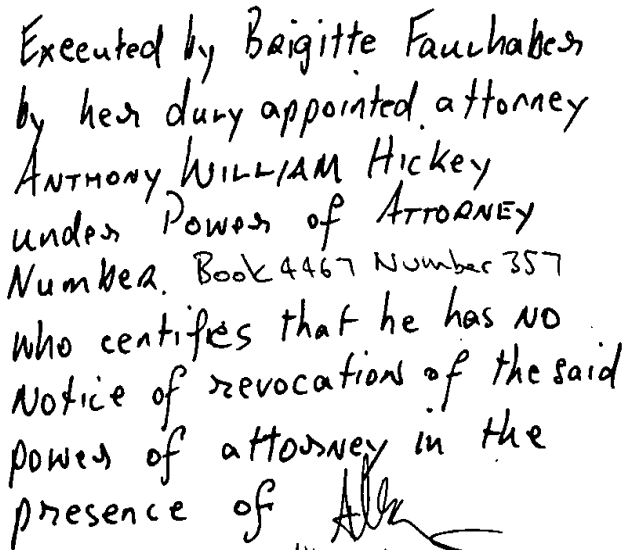 Executed by Brigitte Fauchaber
by her duly appointed attorney
ANTHONY WILLIAM Hickey
under Power of ATTORNEY
Number. Book 4467 Number 357
who certifies that he has NO
Notice of revocation of the said
power of attorney in the
presence of